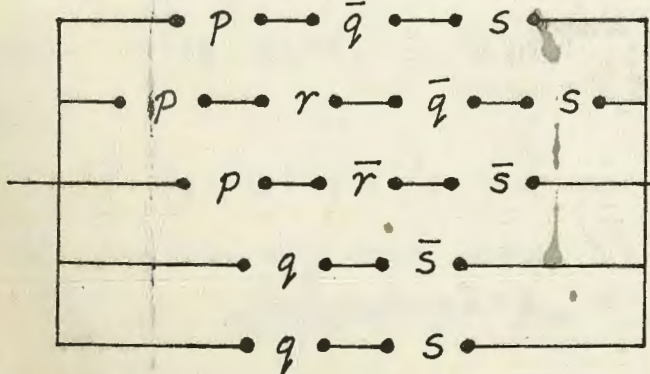 p q̄ s
p r q̄ s
p r̄ s̄
q s̄
q s